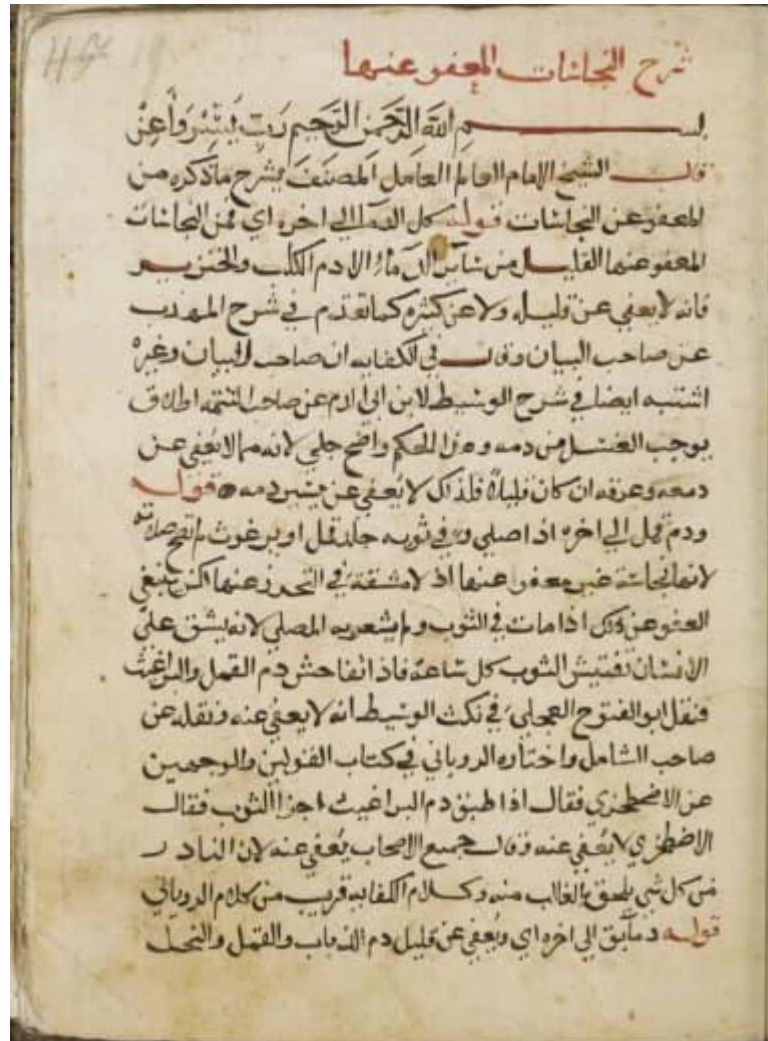 شرح النجاسات المعفو عنها
بسم الله الرحمن الرحيم رب يسر واعن
قال الشيخ الامام العالم العامل المصنف يشرح ما ذكره من
المعفو عن النجاسات قوله كل الدما الي اخره اي فمن النجاسات
المعفو عنها القليل من سائر الدماء الا دم الكلب والخنزير
فانه لا يعفي عن قليله ولا عن كثيره كما تقدم في شرح المهذب
عن صاحب البيان وقال في الكفايه ان صاحب البيان وغيره
ايضا في شرح الوسيط لابن ابي الدم عن صاحب التتمه اطلاق
بوجب الغسل من دمه وهذا الحكم واضح جلي لانه مما لا يعفي عن
دمعه وعرقه ان كان قليلا فلذلك لا يعفي عن يسير دمه قوله
ودم قمل الي اخره اذا صلي وفي ثوبه جلد قمل او برغوث لم تصح صلاته
لانها نجاسة غير معفو عنها اذ لا مشقة في التحرز عنها لكن ينبغي
العفو عن ذلك اذا مات في الثوب ولم يشعر به المصلي لانه يشق علي
الانسان تفتيش الثوب كل ساعة فاذا تفاحش دم القمل والبراغيث
فنقل ابو الفتوح العجلي في نكت الوسيط انه لا يعفي عنه ونقله عن
صاحب الشامل واختاره الروياني في كتاب القولين والوجهين
عن الاصطخري فقال اذا طبق دم البراغيث اجزا الثوب فقال
الاصطخري لا يعفي عنه وقال جميع الاصحاب يعفي عنه لان النادر
من كل شي يلحق بالغالب منه وكلام الكفايه قريب من كلام الروياني
قوله دما بق الي اخره اي ويعفي عن قليل دم الذباب والقمل والنحل